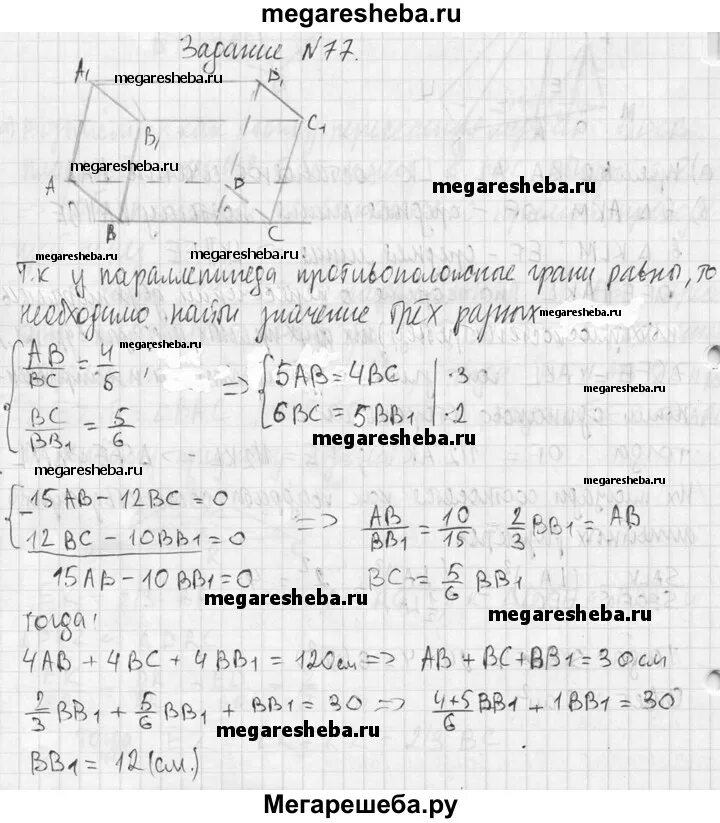 megaresheba.ru
Задание N77.
A₁ megaresheba.ru D₁
B₁ C₁
megaresheba.ru
A D megaresheba.ru
B C
megaresheba.ru megaresheba.ru
Т.к у параллепипеда противоположные грани равны, то
необходимо найти значение трёх разных megaresheba.ru
{ AB/BC = 4/5, megaresheba.ru => { 5AB = 4BC | ·3
megaresheba.ru
BC/BB₁ = 5/6 6BC = 5BB₁ | ·2
megaresheba.ru
megaresheba.ru megaresheba.ru
{ 15AB - 12BC = 0 => AB/BB₁ = 10/15 2/3 BB₁ = AB
- 12BC - 10BB₁ = 0
15AB - 10BB₁ = 0 BC = 5/6 BB₁
megaresheba.ru
megaresheba.ru
тогда:
4AB + 4BC + 4BB₁ = 120см => AB + BC + BB₁ = 30см
megaresheba.ru
2/3 BB₁ + 5/6 BB₁ + BB₁ = 30 => 4+5/6 BB₁ + 1BB₁ = 30
megaresheba.ru
BB₁ = 12 (см.)
Мегарешеба.ру